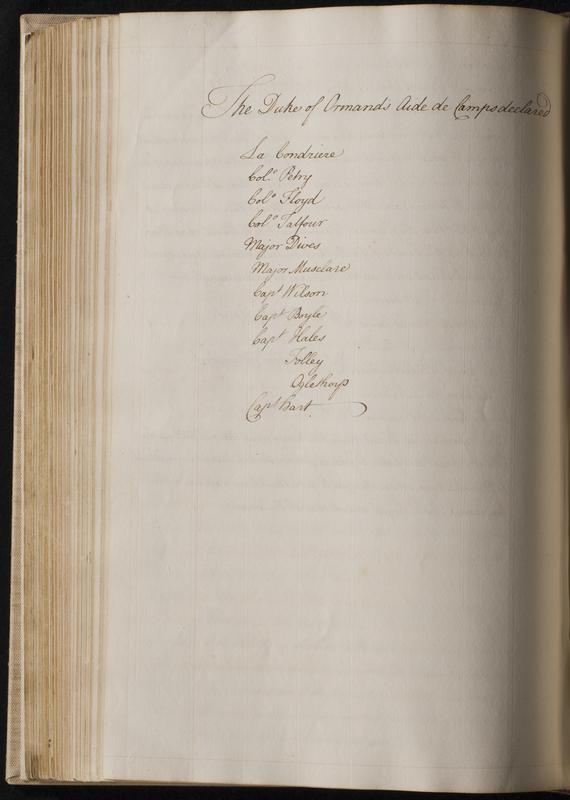 The Duke of Ormands Aide de Camps declared
La Condriere
Colo. Petry
Colo Floyd
Colo Talfour
Major Dives
Major Musclare
Capt Wilson
Capt Boyle
Capt Hales
Folley
Oglethorp
Capt Hart.